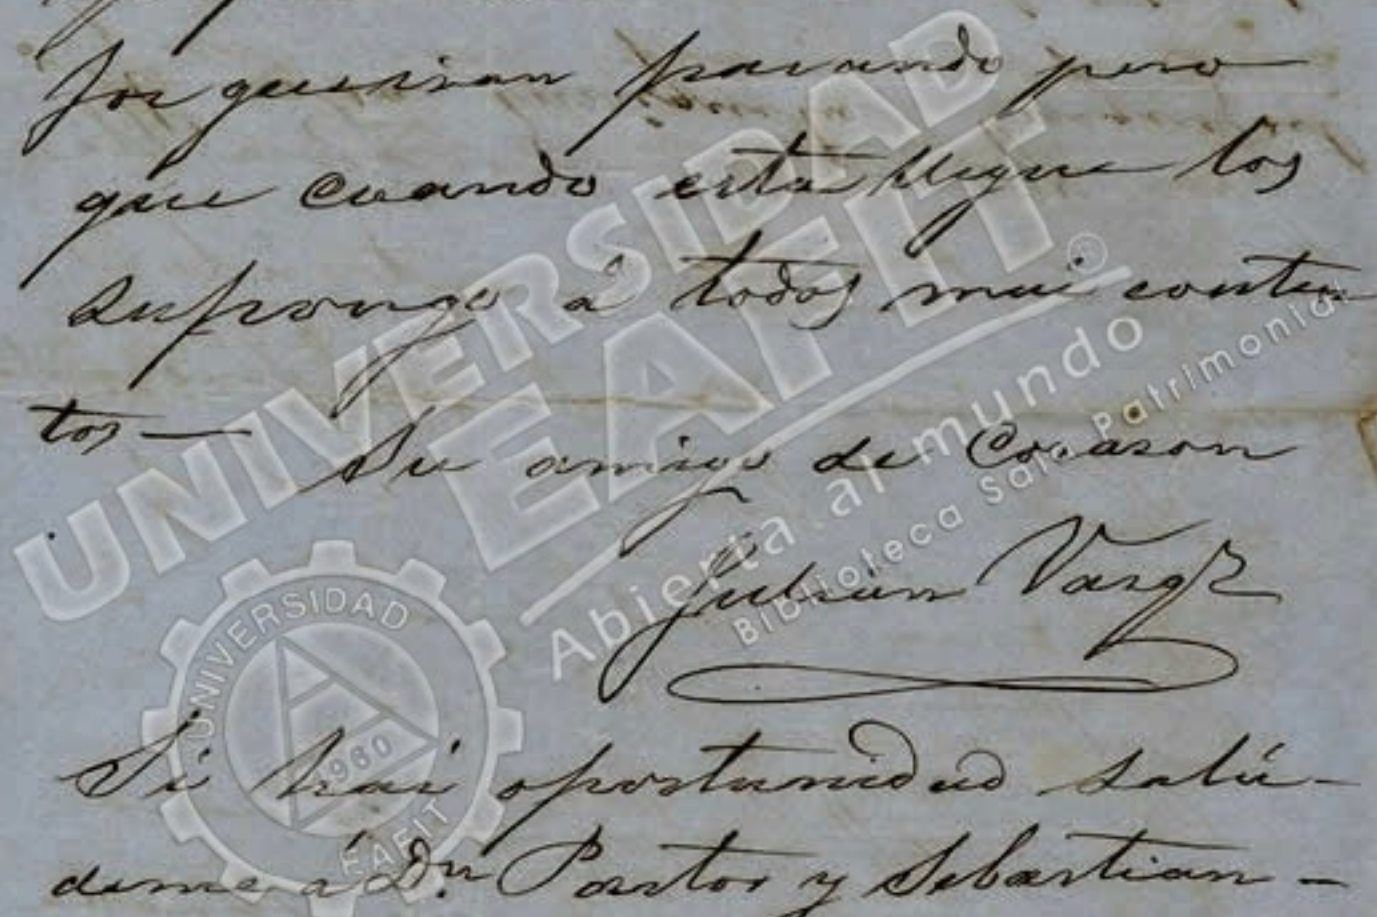 jos que iran pasando pero
que cuando esta llegue los
supongo á todos mui conten
tos —
Su amigo de Corazon
Julian Vargz
Si hai oportunidad salú-
deme á Dn. Pastor y Sebastian —
UNIVERSIDAD
EAFIT®
Abierta al mundo
Biblioteca Sala Patrimonial
UNIVERSIDAD
1960
EAFIT